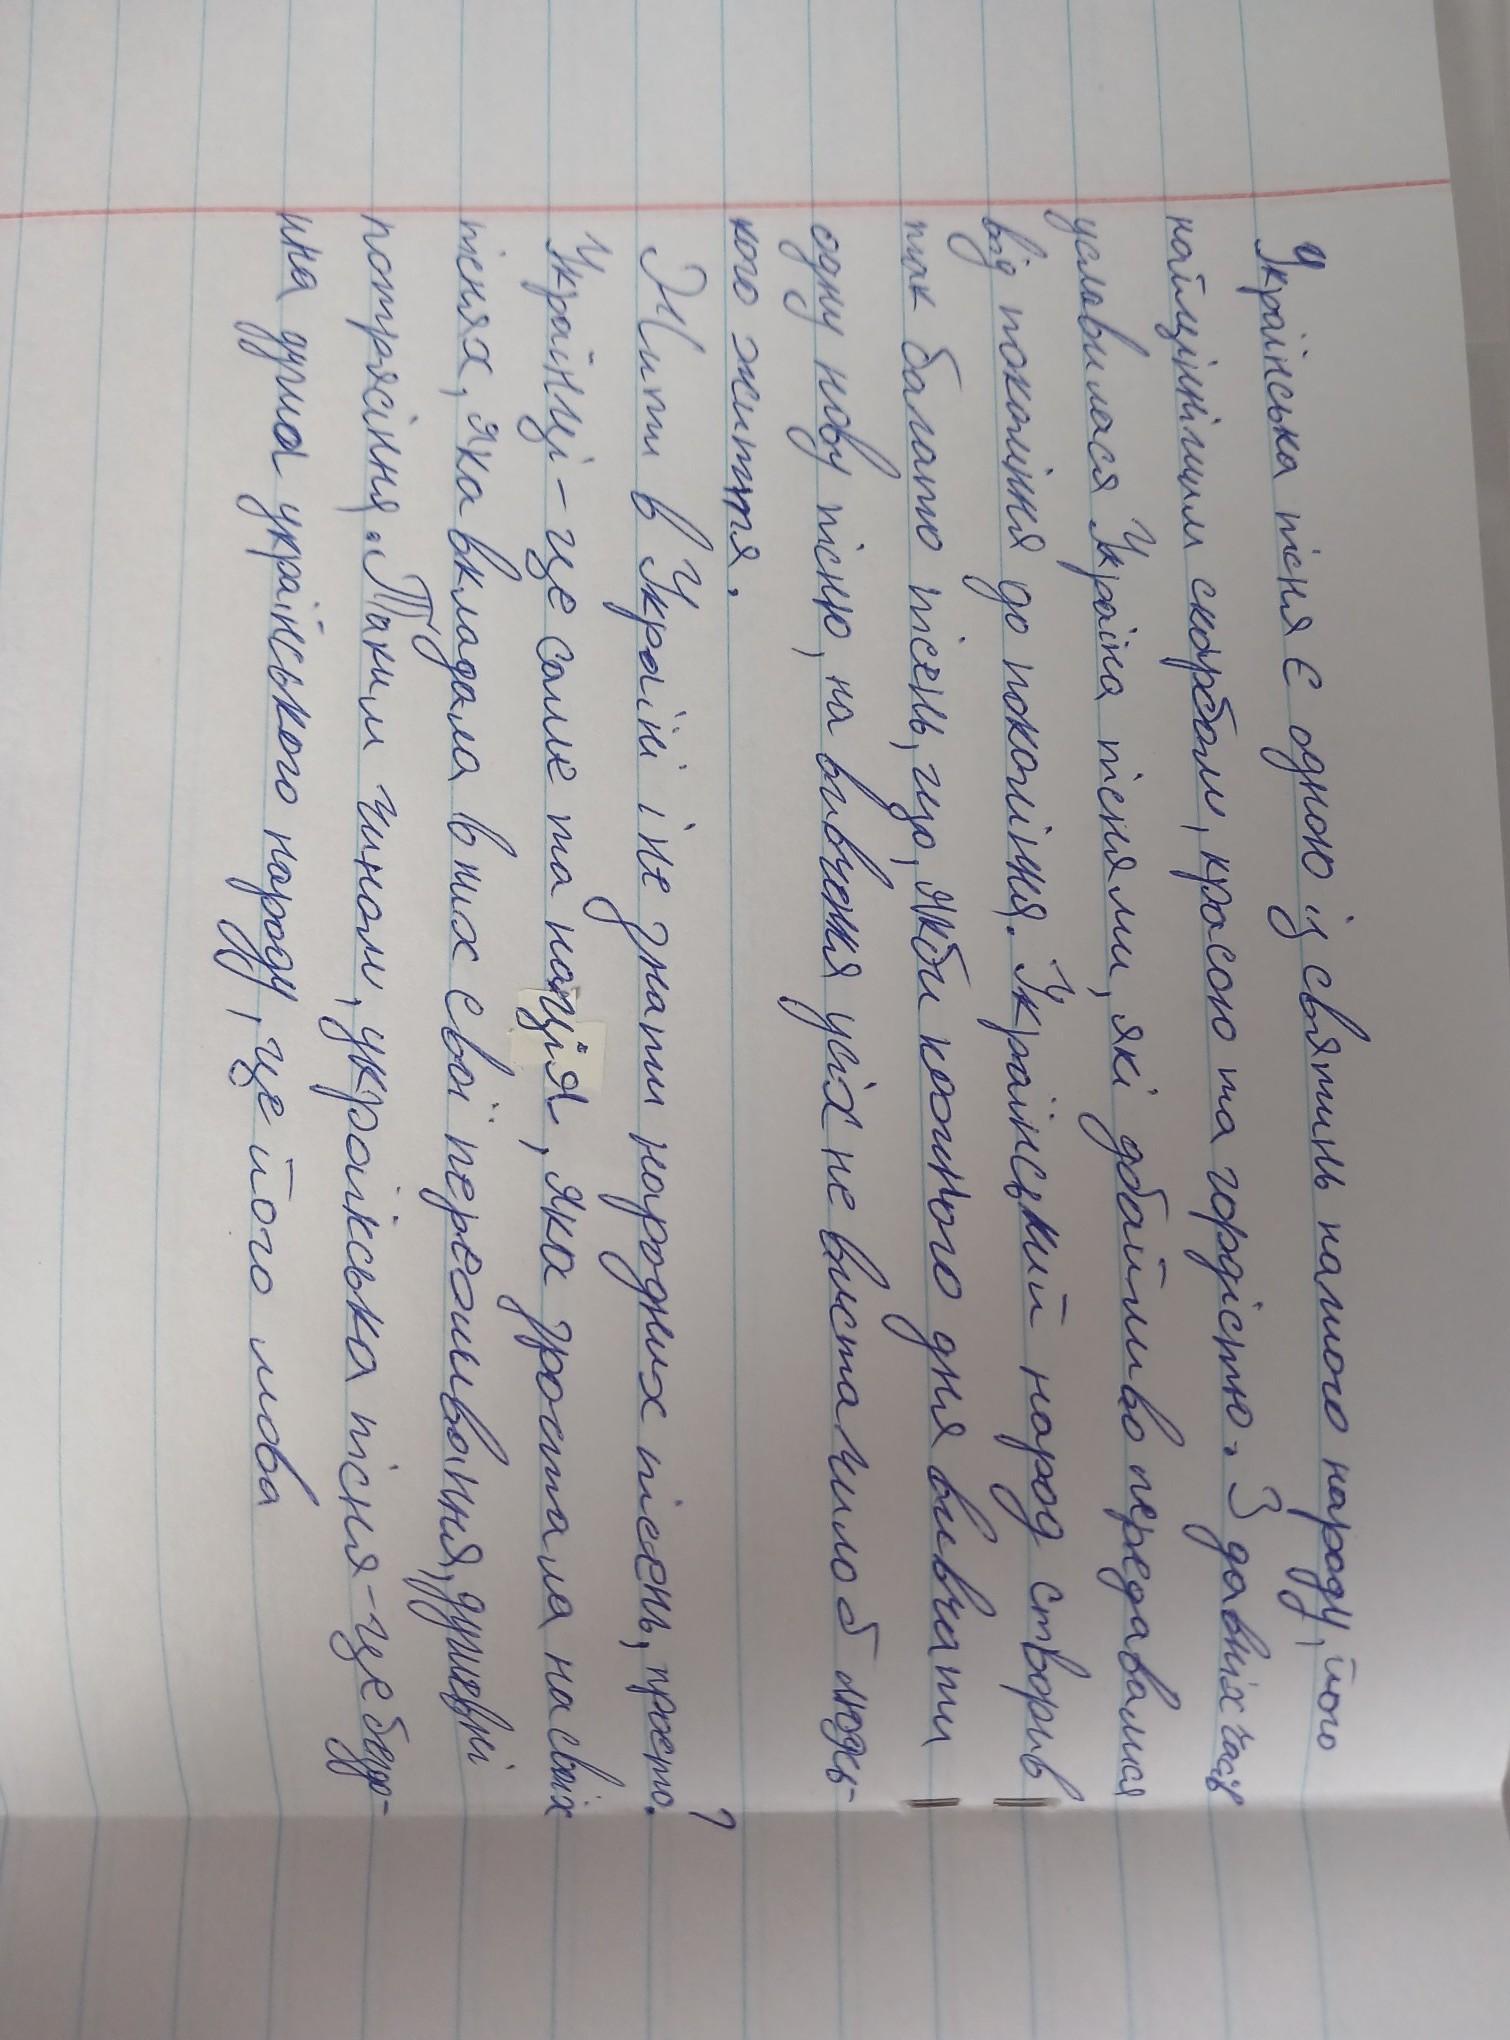 Українська пісня є одною із святинь нашого народу, його
найціннішим скарбом, красою та гордістю. З давніх часів
уславилася Україна піснями, які дбайливо передавалися
від покоління до покоління. Український народ створив
так багато пісень, що, якби кожного дня вивчати
одну нову пісню, на вивчення усіх не вистачило б людсь-
кого життя.
Жити в Україні і не знати народних пісень, просто.
Українці - це саме та нація, яка зростала на своїх
піснях, яка вкладала в них свої переживання, душевні
потрясіння. Таким чином, українська пісня - це бездо-
нна душа українського народу, це його мова